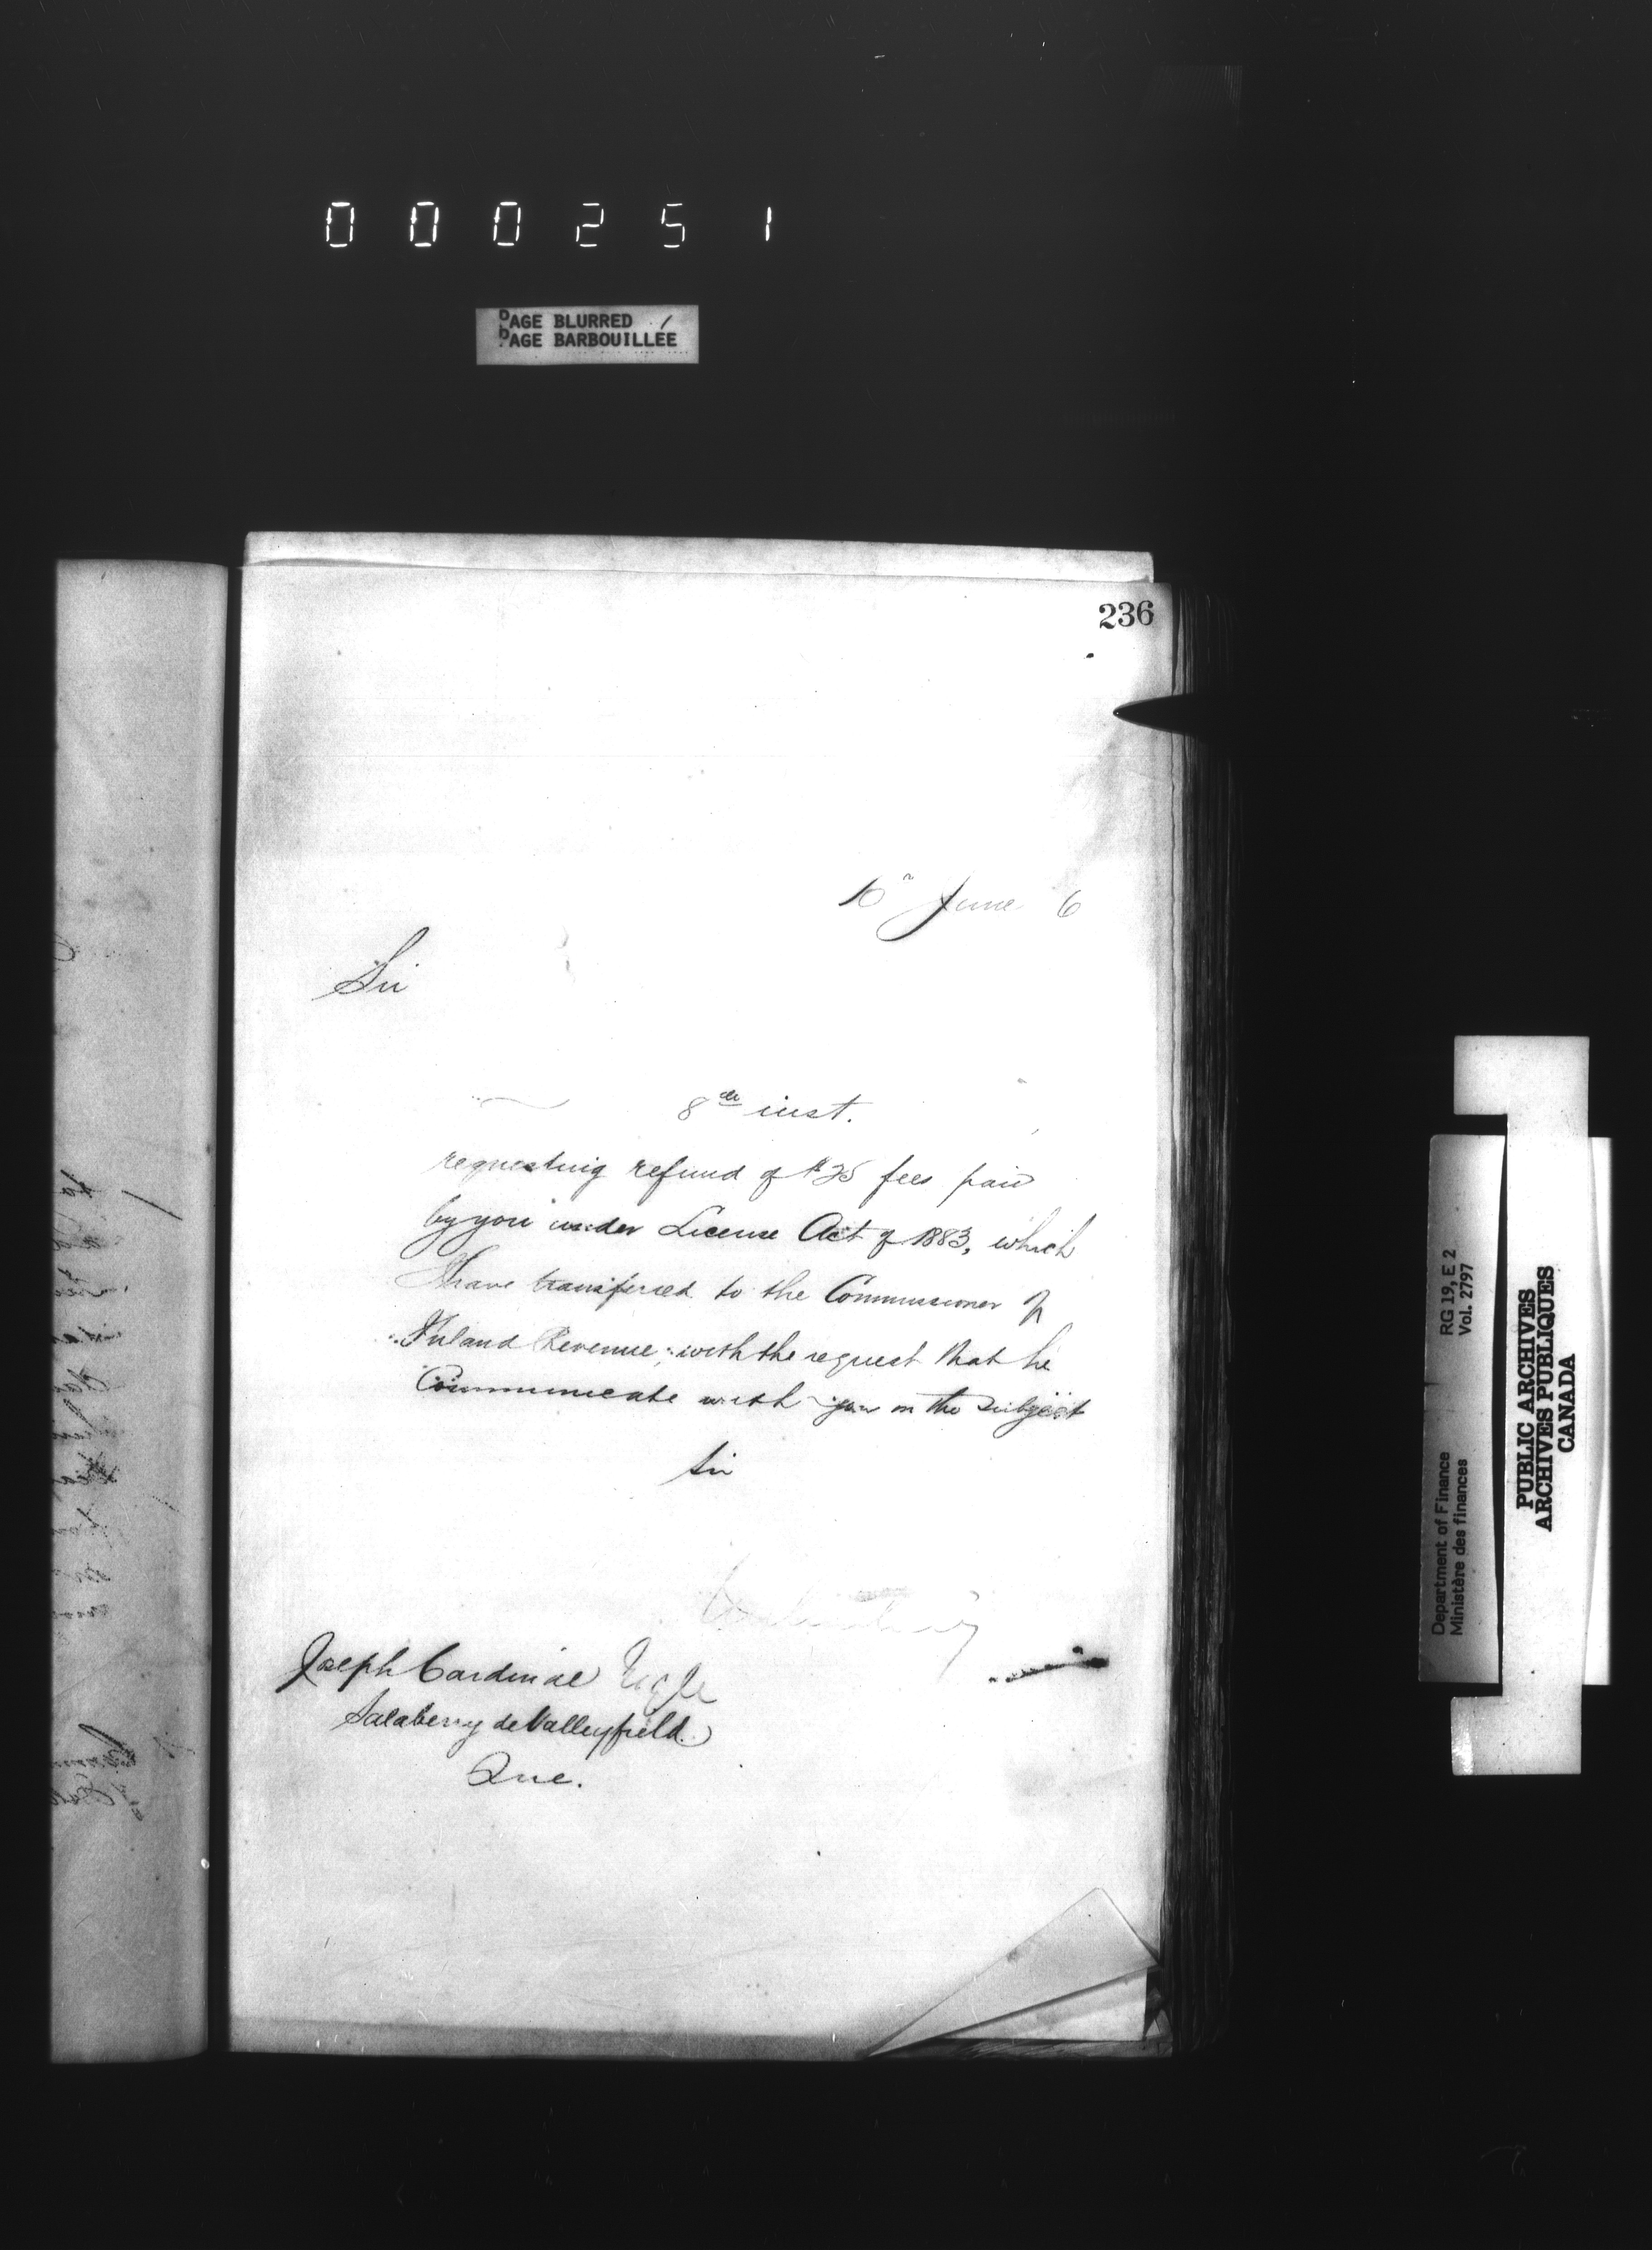 000251
PAGE BLURRED
PAGE BARBOUILLÉE
236
10th June 6
Sir
8th inst.
requesting refund of $25 fees paid
by you under License Act of 1883, which
I have transferred to the Commissioner of
Inland Revenue, with the request that he
Communicate with you on the subject
Sir
Joseph Cardinal Esqre
Salaberry de Valleyfield
Que.
Department of Finance RG 19, E 2
Ministère des finances Vol. 2797
PUBLIC ARCHIVES
ARCHIVES PUBLIQUES
CANADA